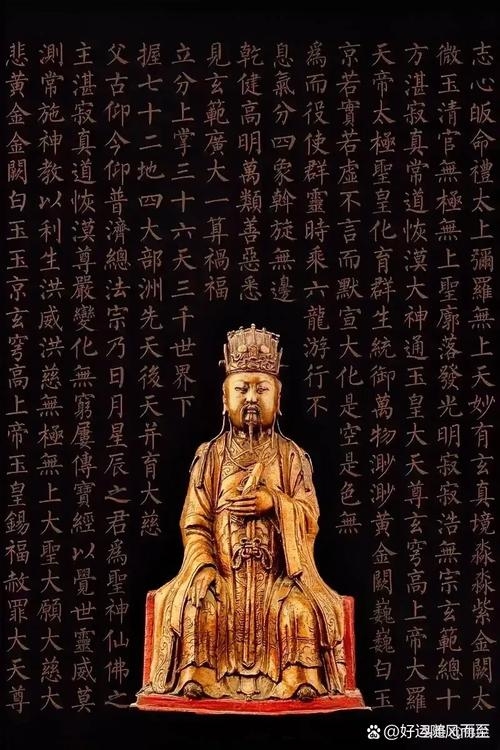 志心皈命禮太上彌羅無上天妙有玄真境淼淼紫金闕太
微玉清宮無極無上聖廓落發光明寂寂浩無宗玄範總十
方湛寂真常道恢漠大神通玉皇大天尊玄穹高上帝大羅
天帝太極聖皇化育群生統御萬物渺渺黃金闕巍巍白玉
京若實若虛不言而默宣大化是空是色無
爲而役使群靈時乘六龍游行不
息氣分四象斡旋無邊
乾健高明萬類善惡悉
見玄範廣大一算禍福
立分上掌三十六天三千世界下
握七十二地四大部洲先天後天并育大慈
父古仰今仰普濟總法宗乃日月星辰之君爲聖神仙佛之
主湛寂真道恢漠尊嚴變化無窮屢傳寶經以覺世靈威莫
測常施神教以利生洪威洪慈無極無上大聖大願大慈大
悲黃金金闕白玉玉京玄穹高上帝玉皇錫福赦罪大天尊
好运 风而至